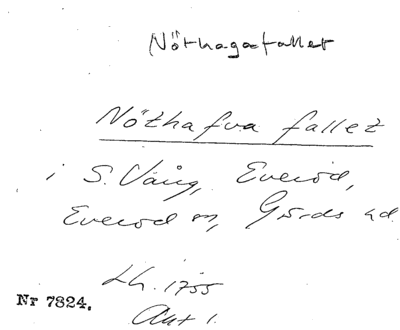 Nöthagafallet
Nöthafva fallet
i S. Vång, Everöd,
Everöd sn, Gärds hd.
Lh. 1755
Akt 1.
Nr 7824.